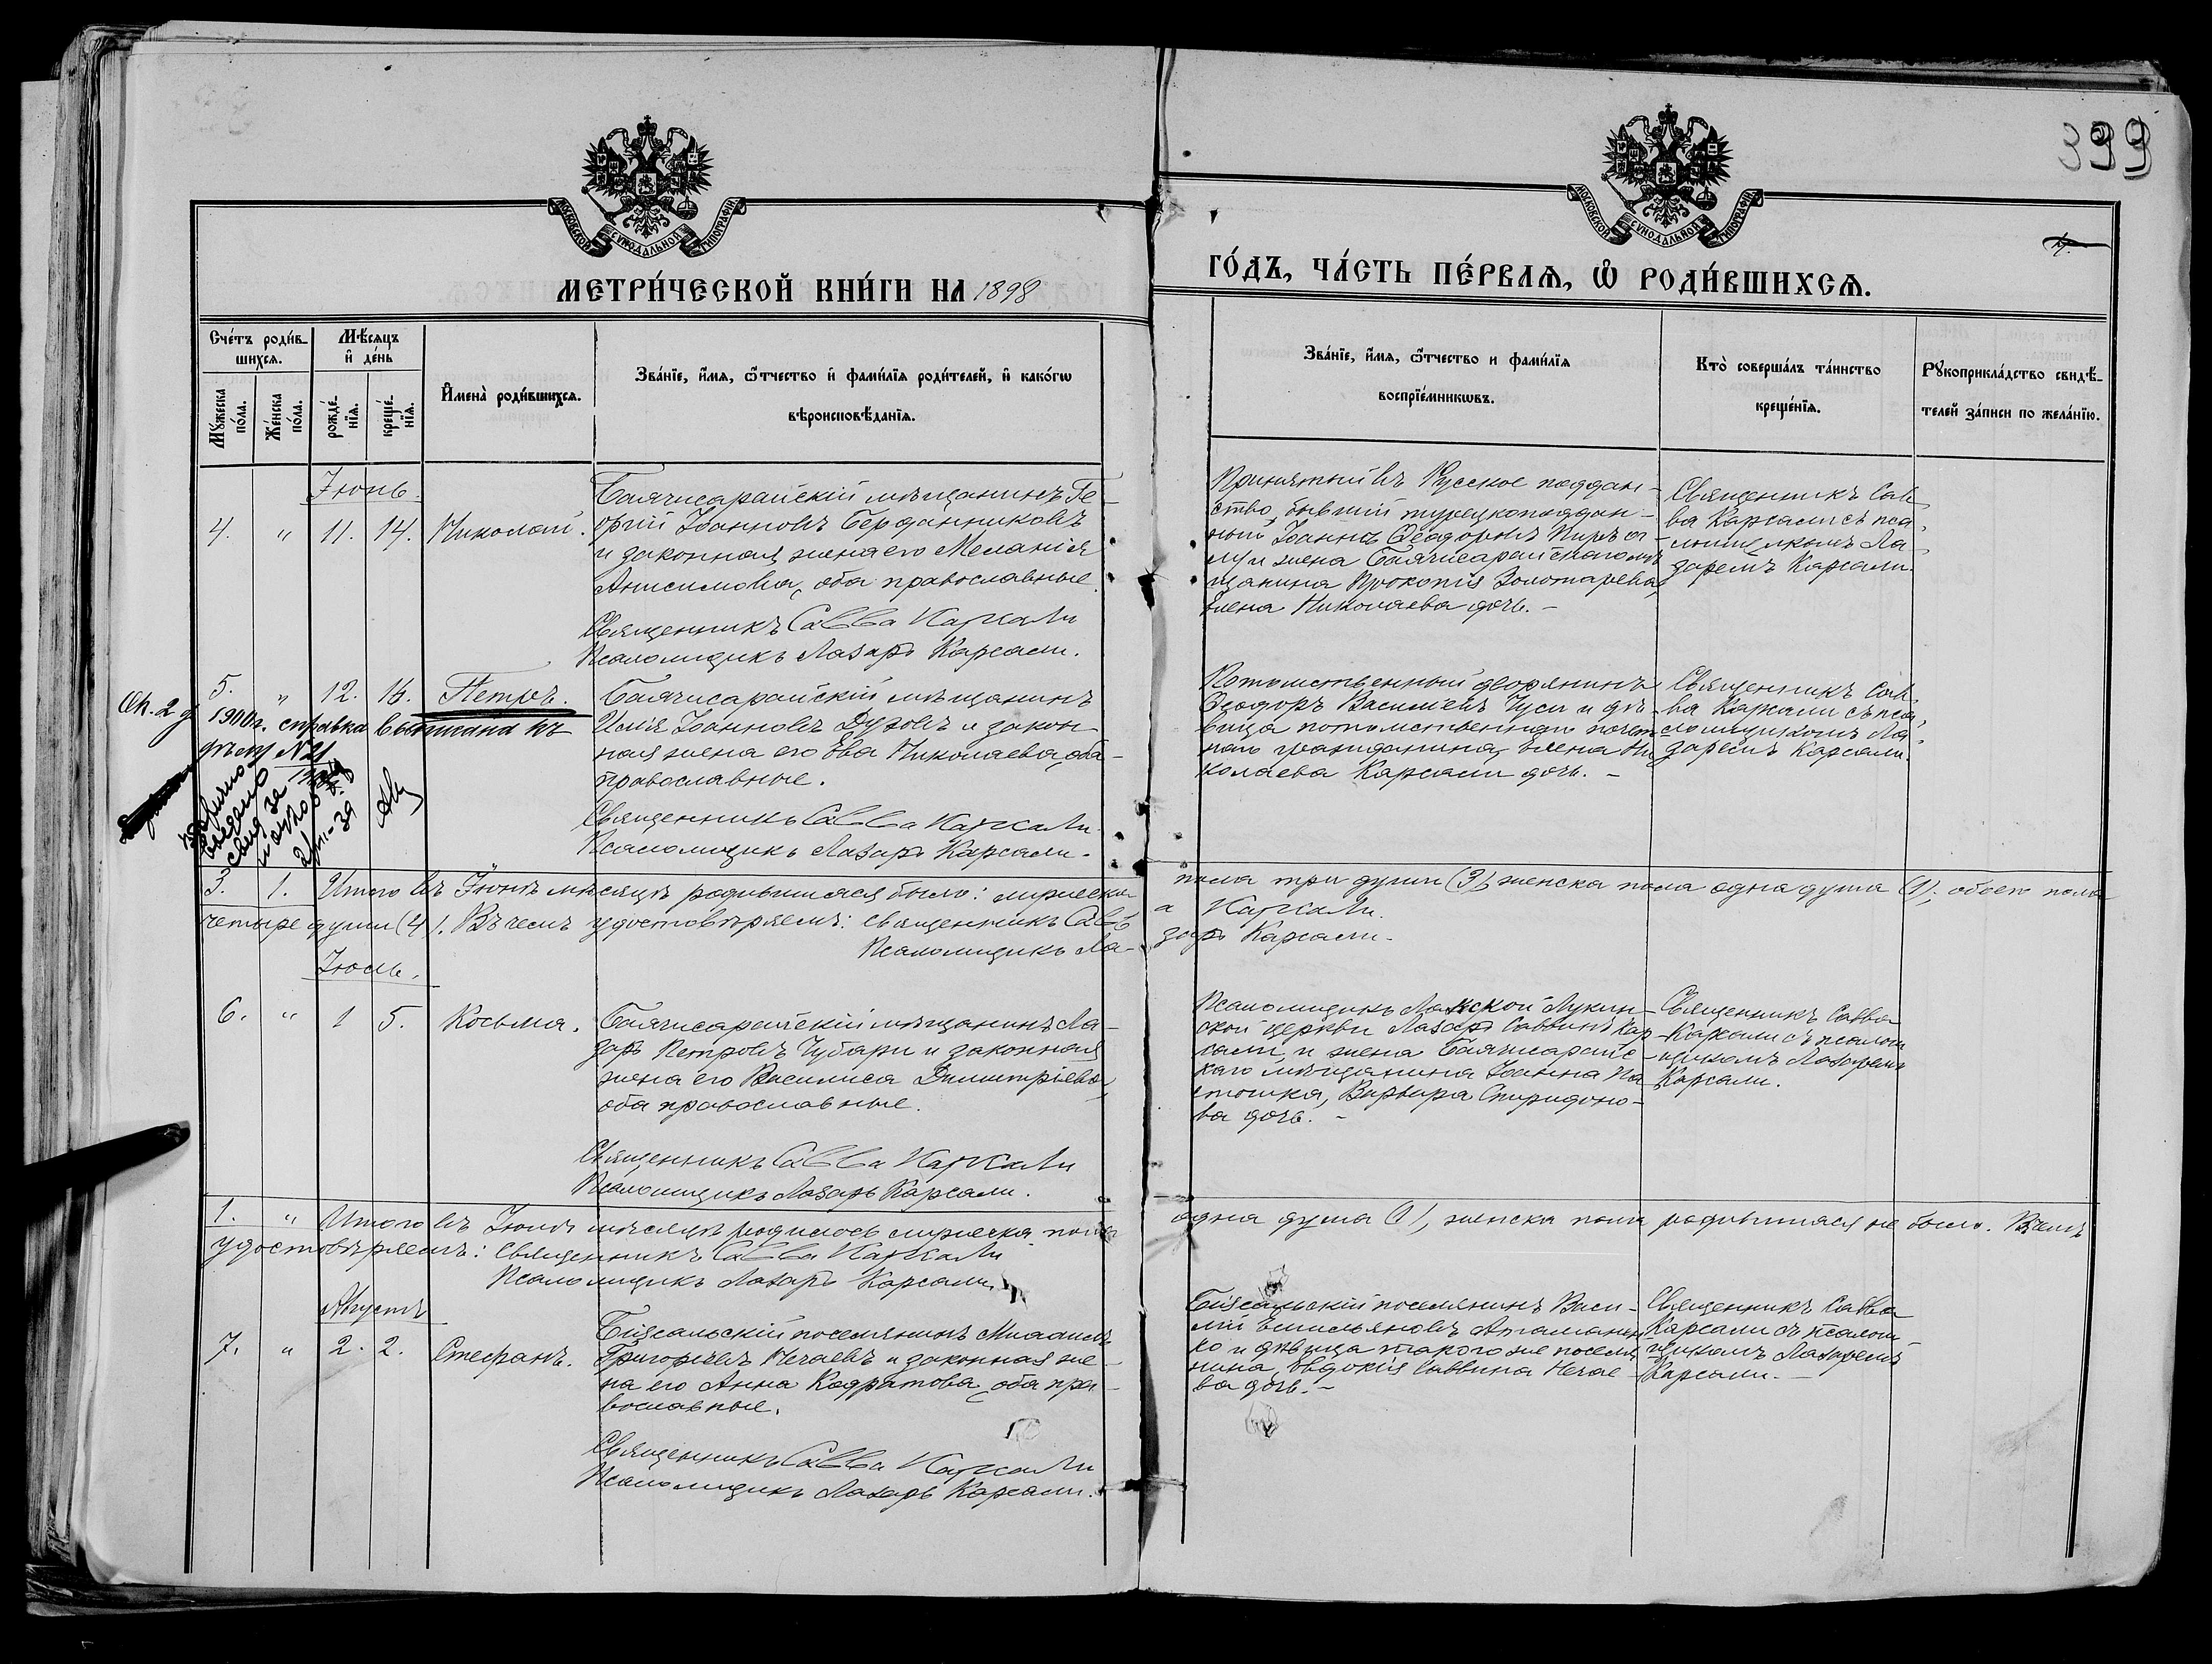 399
4.
МОСКОВСКОЙ СѴНОДАЛЬНОЙ ТИПОГРАФІИ
МОСКОВСКОЙ СѴНОДАЛЬНОЙ ТИПОГРАФІИ
МЕТРИ́ЧЕСКОЙ КНИ́ГИ НА 1898
ГО́ДЪ, ЧА́СТЬ ПЕ́РВАѦ, Ѡ҆ РОДИ́ВШИХСѦ.
Сче́тъ роди́в-
шихсѧ.
Мꙋ́жеска по́ла.
Же́нска по́ла.
Мѣ́сѧцъ
и҆ де́нь
рожде́-
нїѧ.
креще́-
нїѧ.
И҆мена̀ роди́вшихсѧ.
Зва́нїе, и҆́мѧ, ѻ҆́тчество и҆ фами́лїѧ роди́телей, и҆ како́гѡ
вѣроисповѣ́данїѧ.
Зва́нїе, и҆́мѧ, ѻ҆́тчество и фами́лїѧ
воспрїе́мникѡвъ.
Кто̀ соверша́лъ та́инство
креще́нїѧ.
Рꙋкоприкла́дство свидѣ́-
телей за́писи по жела́нїю.
Іюнь.
4. " 11. 14. Николай.
Бахчисарайскій мѣщанинъ Ге-
оргій Іоанновъ Берданниковъ
и законная жена его Меланія
Анисимова, оба православные.
Священникъ Савва Каргали
Псаломщикъ Лазарь Каргали.
Принятый въ Русское поддан-
ство, бывшій турецкоподдан-
ный Іоаннъ Ѳеодоровъ
и жена Бахчисарайскаго мѣ
щанина Прокопія Золотарева,
Елена Николаева дочь. -
Священникъ Сав
ва Каргали съ пса-
ломщикомъ Ла-
заремъ Каргали.
5. " 12. 14. Петръ.
Ок. 2 д
1900г. справка выписана къ
Бахчисарайскій мѣщанинъ
Илія Іоанновъ и закон-
ная жена его Ева Николаева, оба
православные.
Священникъ Савва Каргали
Псаломщикъ Лазарь Каргали.
Потомственный дворянинъ
Ѳеодоръ Васильевъ Чуси и дѣ-
вица потомственнаго почет
наго гражданина, Елена Ни
колаева Каргали дочь. -
Священникъ Сав
ва Каргали съ пса-
ломщикомъ Ла-
заремъ Каргали.
3. 1. Итого въ Іюнѣ мѣсяцѣ родившихся было: мужеска пола три души (3), женска пола одна душа (1); обоего пола
четыре души (4). Въ чемъ удостовѣряемъ: священникъ Савва Каргали.
Псаломщикъ Лазарь Каргали.
Іюль.
6. " 1 5. Косьма.
Бахчисарайскій мѣщанинъ Ла-
зарь Петровъ Чубари и законная
жена его Василиса Димитріева,
оба православные.
Священникъ Савва Каргали
Псаломщикъ Лазарь Каргали.
ской церкви Лазарь Саввинъ Кар
гали, и жена Бахчисарайс-
каго мѣщанина Іоанна Па-
стошка, Варвара Спиридоно-
ва дочь. -
Священникъ Савва
Каргали съ псалом
щикомъ Лазаремъ
Каргали.
1. " Итого въ Іюлѣ мѣсяцѣ родилось мужеска пола одна душа (1), женска пола родившихся не было. Въ чемъ
удостовѣряемъ: Священникъ Савва Каргали
Псаломщикъ Лазарь Каргали.
Августъ
7. " 2. 2. Стефанъ.
Біясальскій поселянинъ Михаилъ
Григорьевъ Нечаевъ и законная же-
на его Анна Кодратова, оба пра-
вославные.
Священникъ Савва Каргали
Псаломщикъ Лазарь Каргали.
Біясальскій поселянинъ Васи-
лій Емельяновъ Атаманен
ко и дѣвица такого же поселя
нина, Евдокія Саввина Нечае-
ва дочь. -
Священникъ Савва
Каргали съ псалом-
щикомъ Лазаремъ
Каргали. -